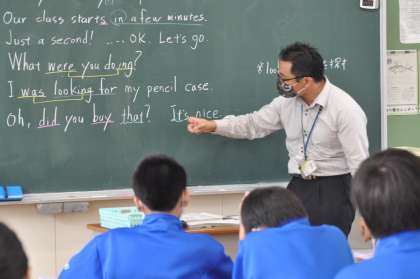 Our class starts in a few minutes.
Just a second! ....OK. Let's go.
What were you doing?
I was looking for my pencil case.
Oh, did you buy that? It's nice.